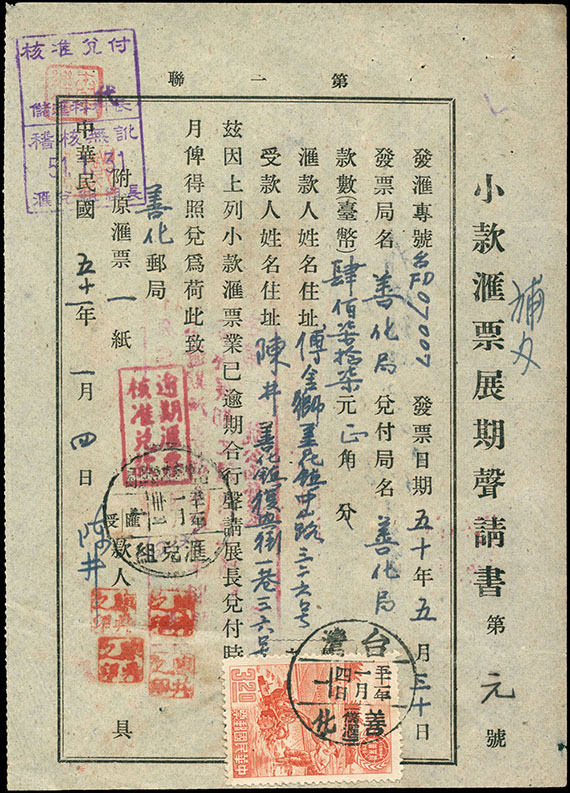 小款滙票展期聲請書 第 元 號
第一聯
發滙專號 FD07007 發票日期 五十年五月三十日
發票局名 善化局 兌付局名 善化局
款數(臺幣) 肆佰柒拾柒元正角 分
滙款人姓名住址 傅金獅 善化鎮中山路三二六号
受款人姓名住址 陳井 善化鎮復興街一巷三六号
茲因上列小款滙票業已逾期合行聲請展長兌付時
月俾得照兌爲荷此致
善化郵局
附原滙票一紙
受款人 陳井 具
中華民國 五十一年 一月 四日
核准兌付
代
稽核無訛
51
31
逾期滙票
核准兌
滙兌組
台灣
五十一年
一月
四日
十
善化
儲滙
3.20
中華民國郵票